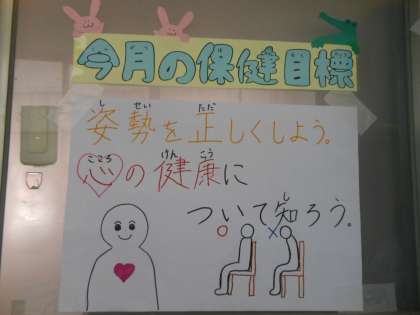 今月の保健目標
姿勢を正しくしよう。
心の健康に
ついて知ろう。